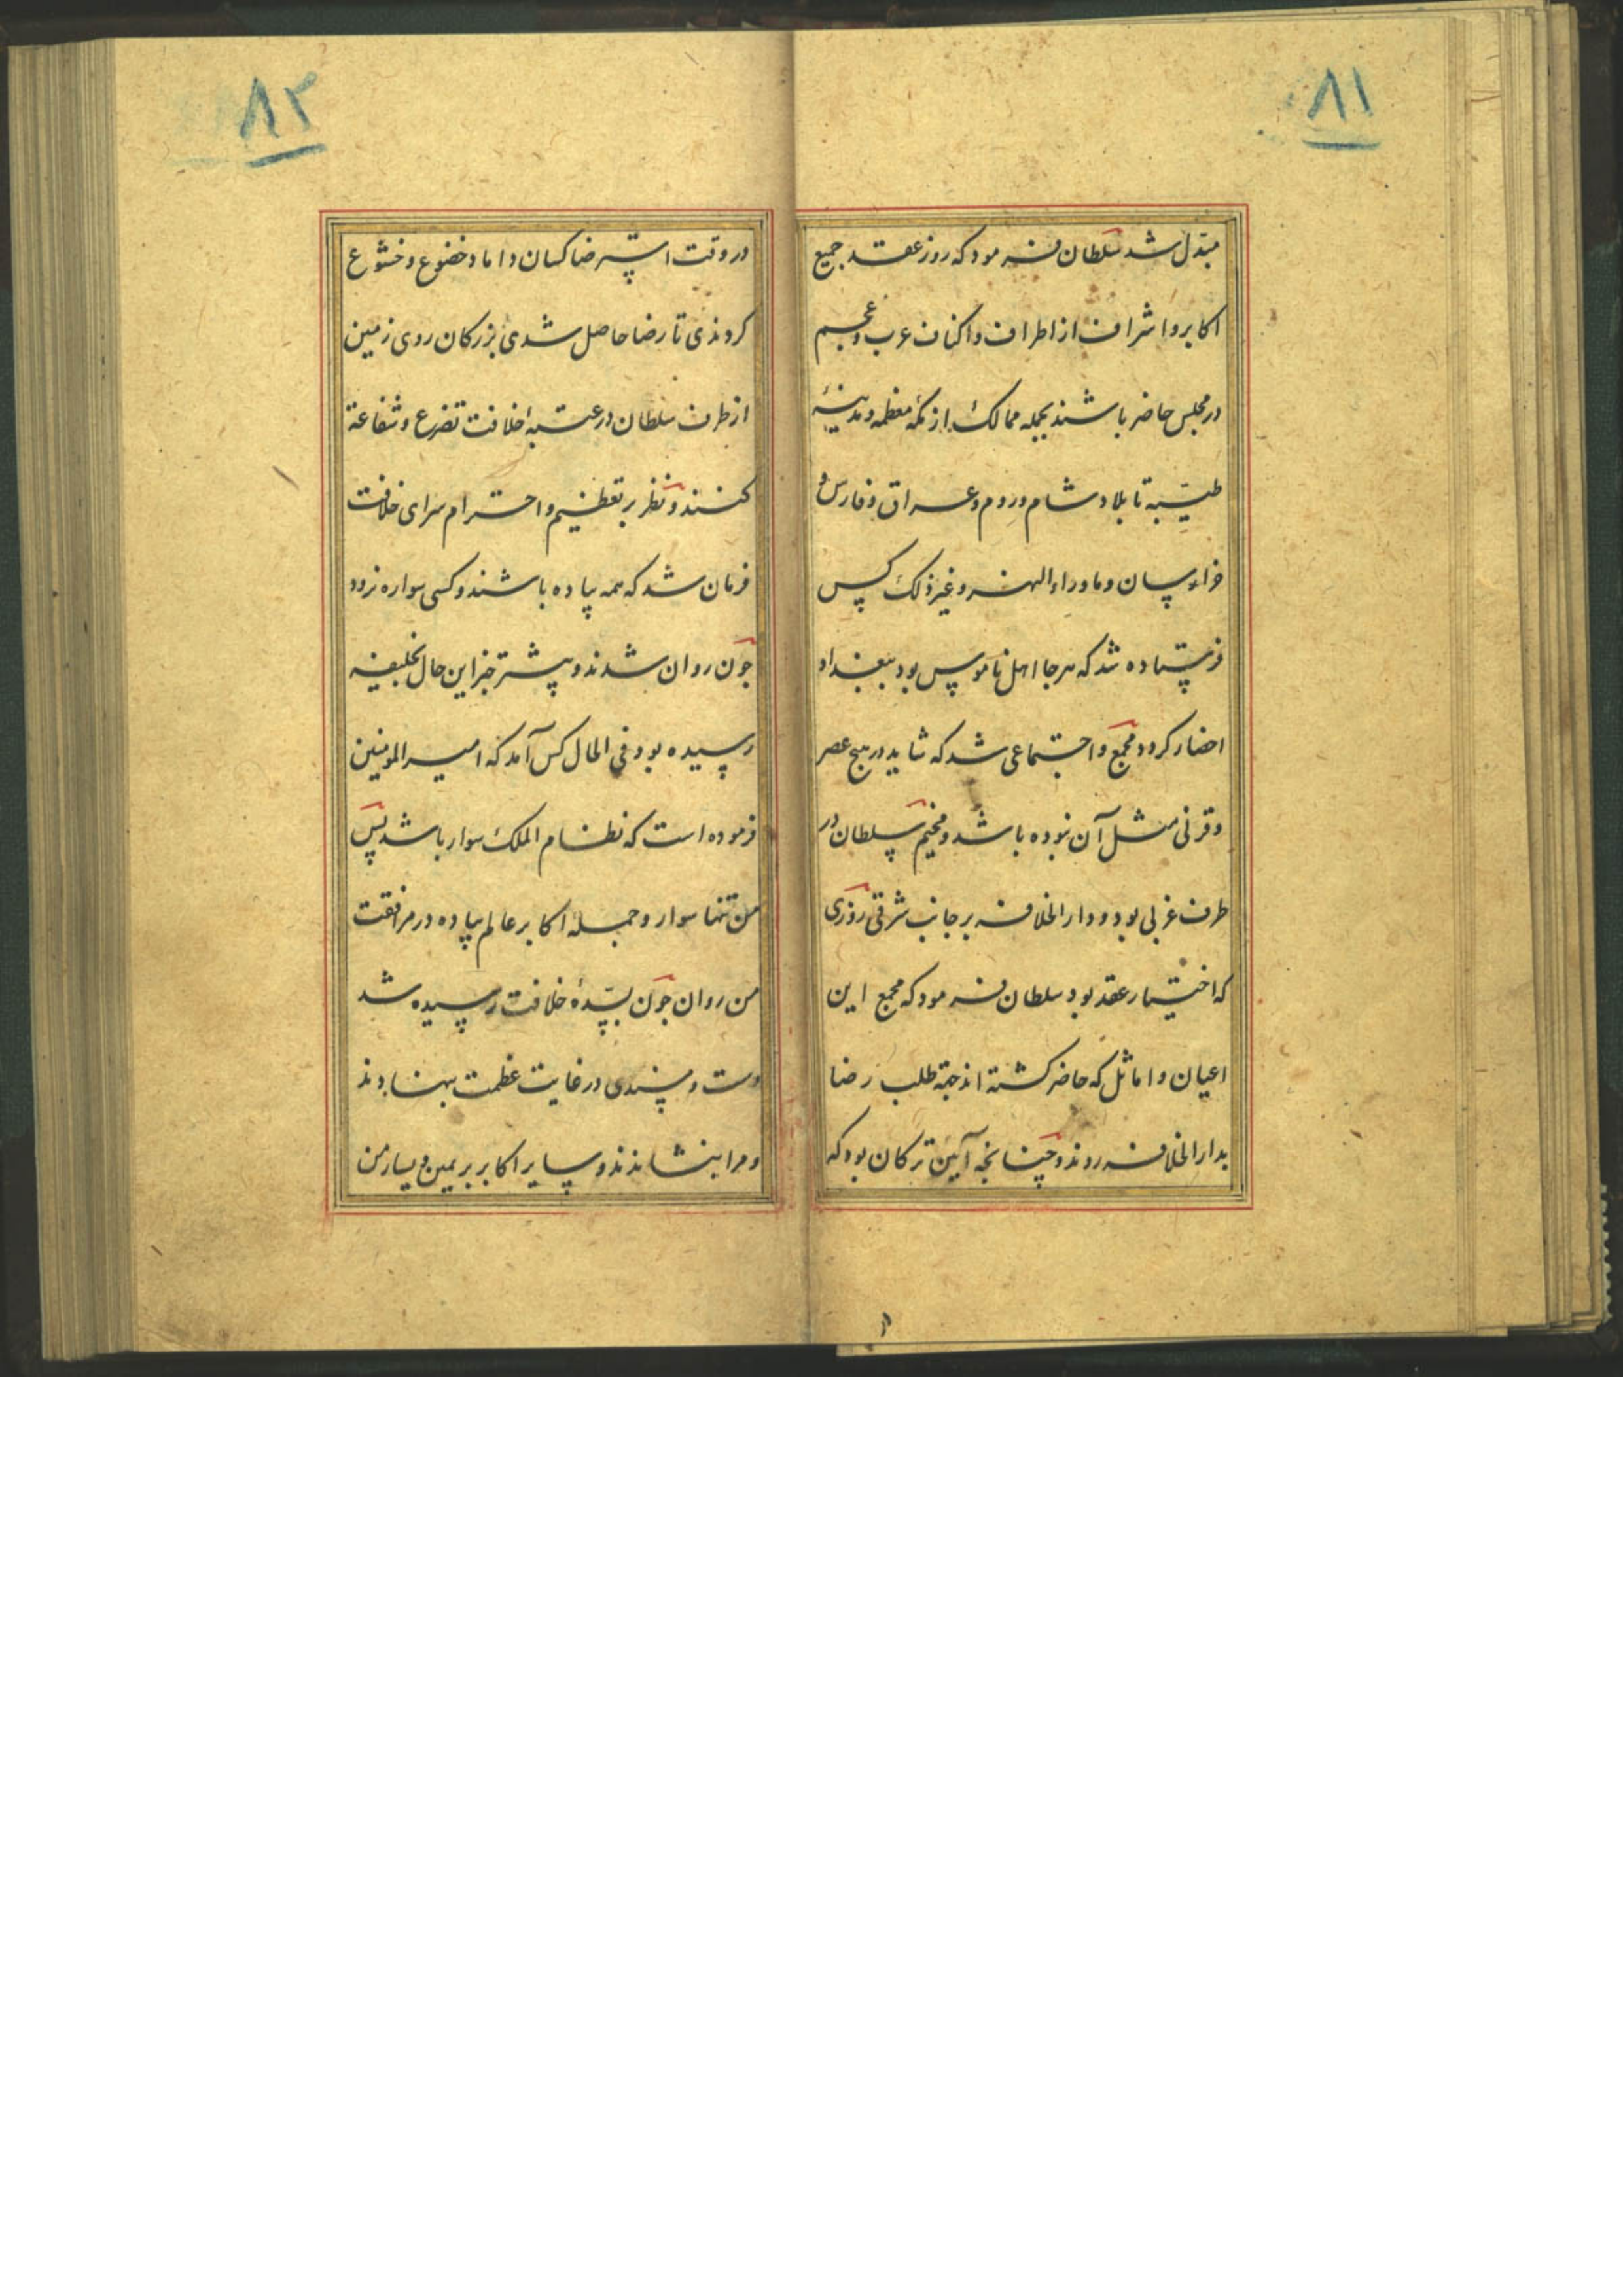 ۸۱
مبدّل شد سلطان فرمود که روز عقد جمیع
اکابر و اشراف از اطراف و اکناف عرب و عجم
در مجلس حاضر باشند بجمله ممالک از مکه معظمه و مدینهٔ
طیّبه تا بلاد شام و روم و عراق و فارس و
خراسان و ماوراء النهر و غیر ذلک کس
فرستاده شد که هرجا اهل ناموس بود ببغداد
احضار کرود مجمع و اجتماعی شد که شاید در هیچ عصر
و قرنی مثل آن نبوده باشد و مخیم سلطان در
طرف غربی بود و دار الخلافه بر جانب شرقی روزی
که اختیار عقد بود سلطان فرمود که مجمع این
اعیان و اماثل که حاضر کشته اند جهة طلب رضا
بدار الخلافه روند و چنانجه آیین ترکان بود که
۸۲
در وقت استرضا کسان داماد خضوع و خشوع
کردندی تا رضا حاصل شدی بزرکان روی زمین
از طرف سلطان در عتبهٔ خلافت تضرع و شفاعة
کنند و نظر بر تعظیم و احترام سرای خلافت
فرمان شد که همه پیاده باشند و کسی سواره نرود
جون روان شدند و پیشتر خبر این حال بخلیفه
رسیده بود فی الحال کس آمد که امیر المومنین
فرموده است که نظام الملک سوار باشد پس
من تنها سوار و جمله اکابر عالم پیاده در مرافقت
من روان جون بسدّهٔ خلافت رسیده شد
دست و مسندی در غایت عظمت بنهادند
و مرا بنشاندند و سایر اکابر بر یمین و یسار من